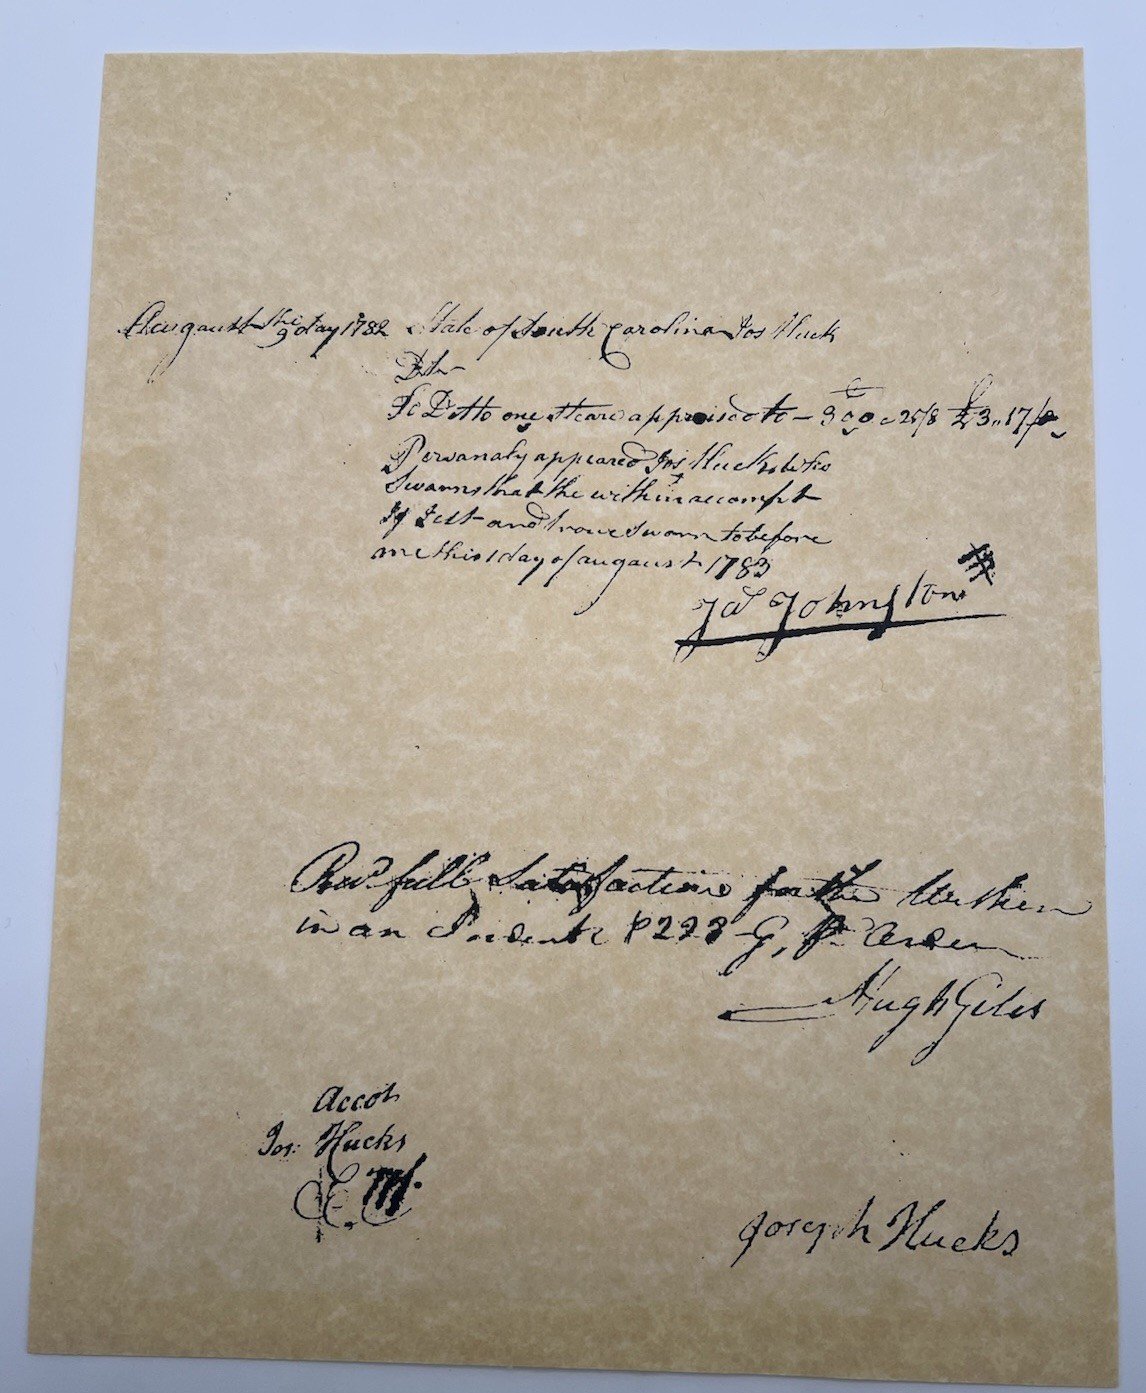 Augaust the 9 day 1782 State of South Carolina Jos Huck
Dr
To Ditto one Steare appraised to — 300 @ 25/8 £3,,17/
Persanaly appeared Jos Hucks who
Swarns that the within accompt
Is Just and troue Sworn to before
me this 1 day of augaust 1783
Ja.s Johnston
Recd. full Satisfaction for the Within
in an Indent 223 G, Pr. Order
Hugh Giles
Accot
Jos: Hucks
E. M.
Joseph Hucks